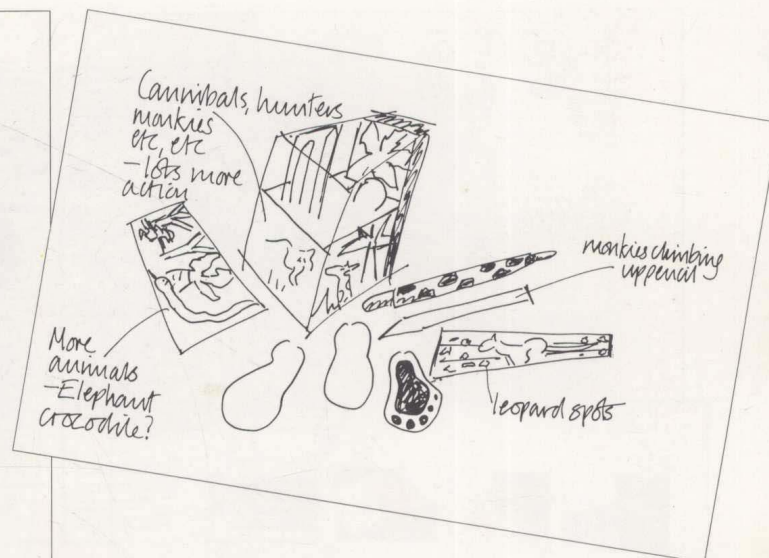 Cannibals, hunters
monkies
etc, etc
– lots more
action
monkies climbing
up pencil
More
animals
– Elephant
crocodile?
leopard spots